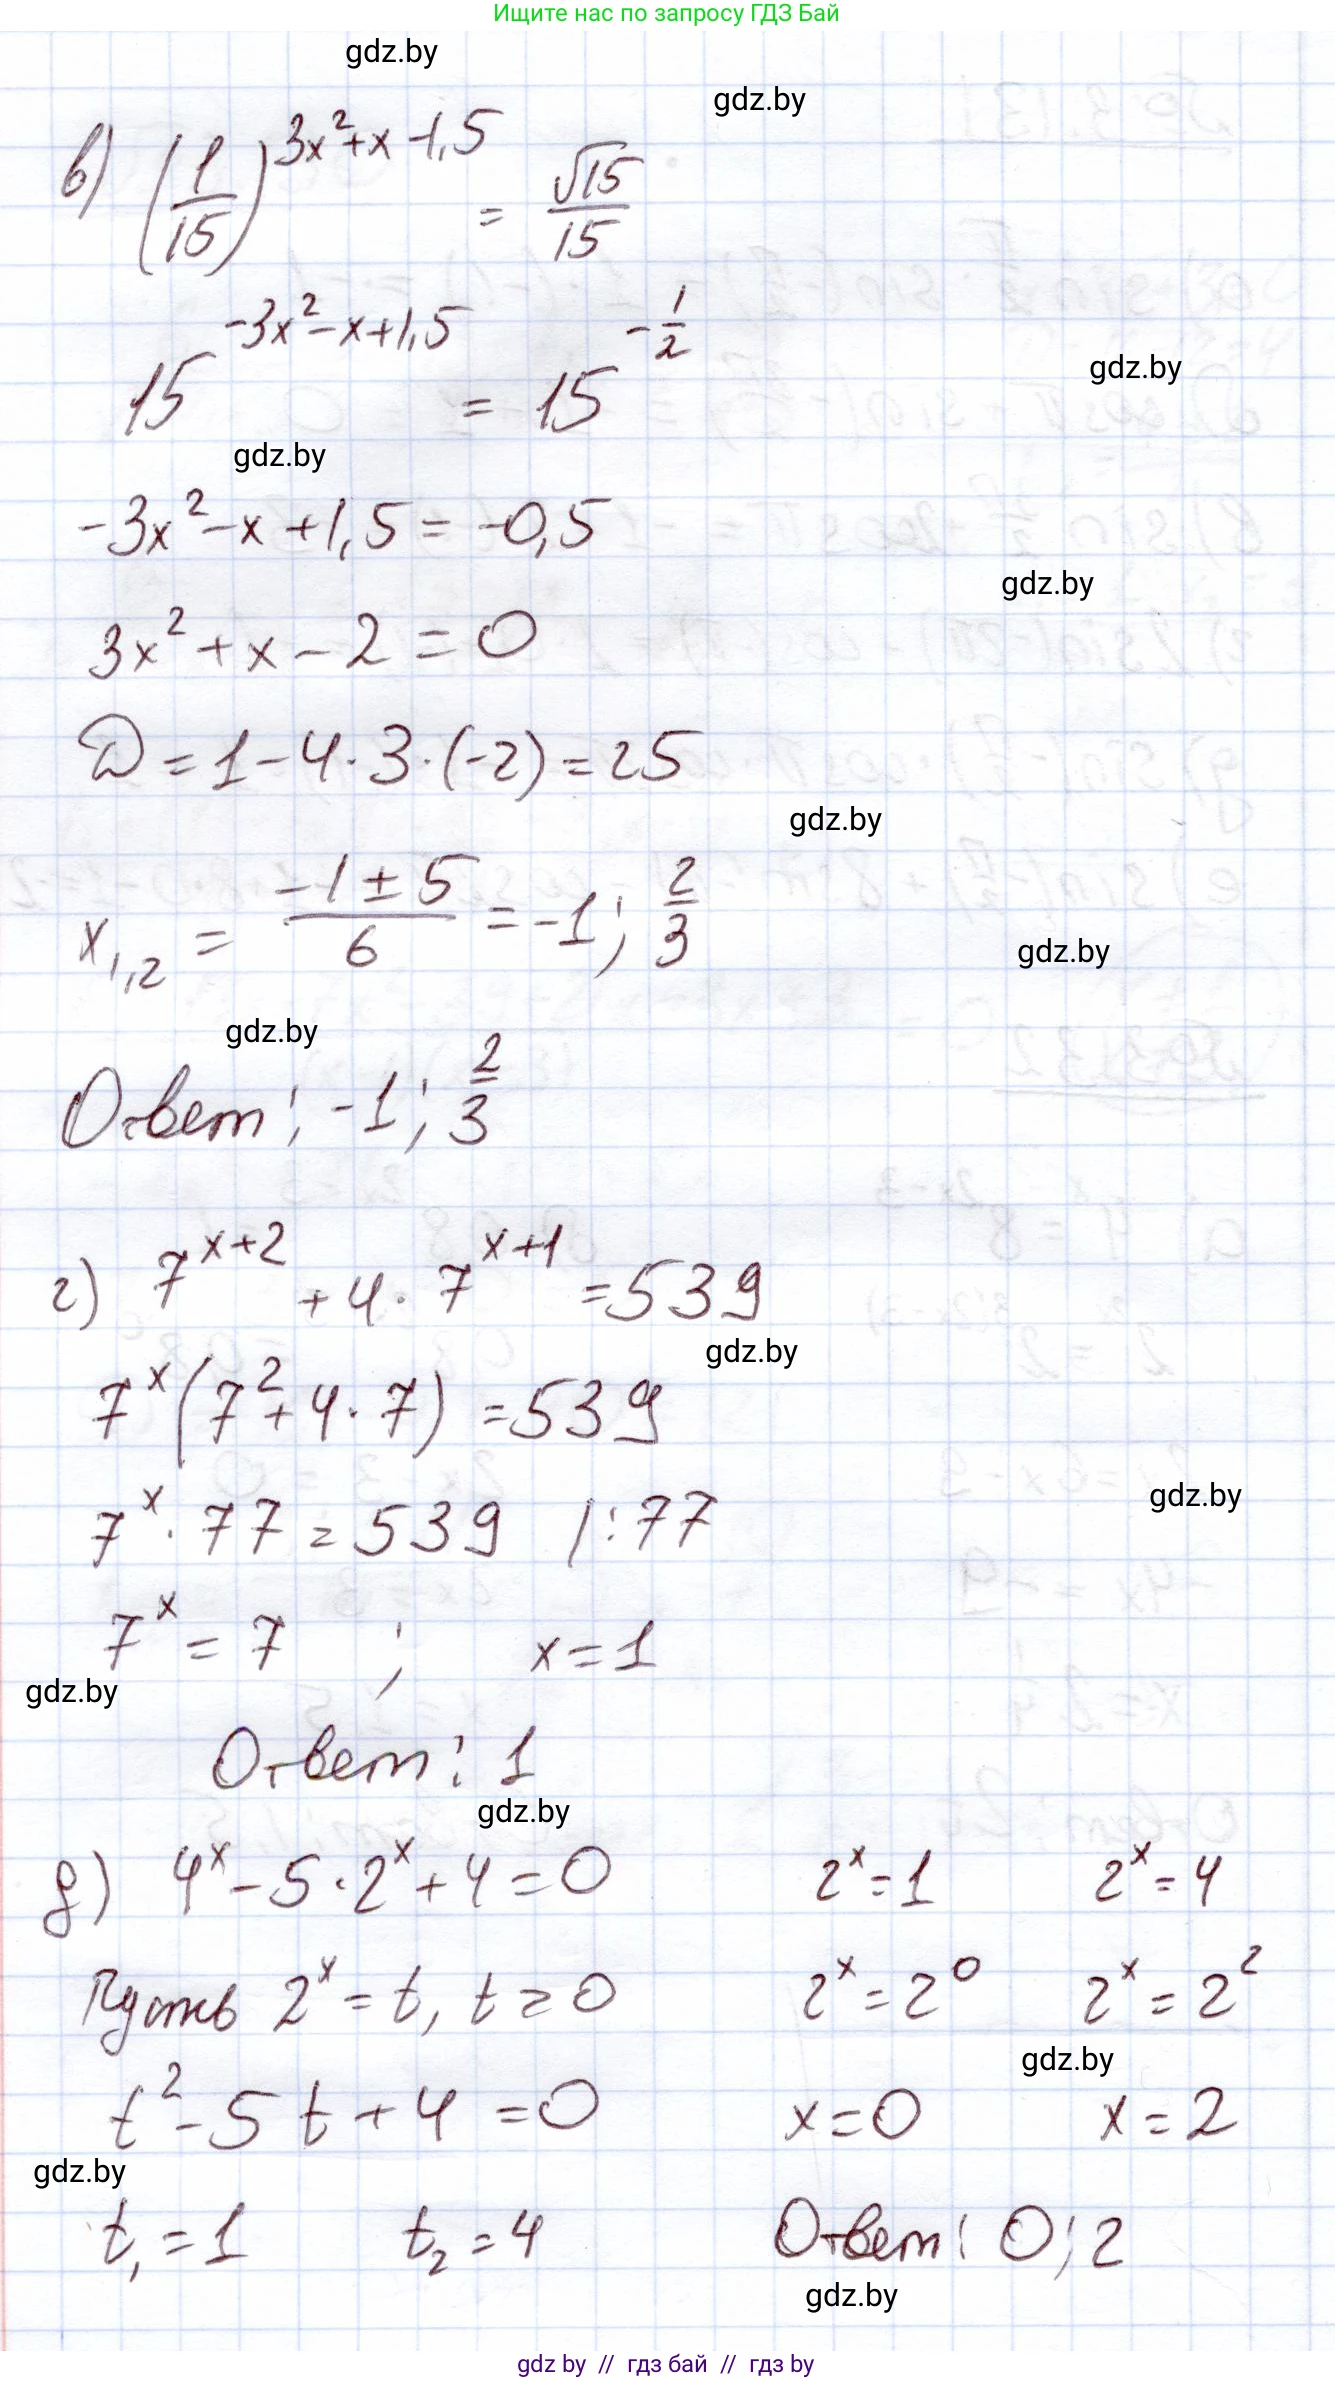 Ищите нас по запросу ГДЗ Бай
gdz.by
gdz.by
в) (1/15)^(3x²+x-1,5) = √15/15
15^(-3x²-x+1,5) = 15^(-1/2)
gdz.by
gdz.by
-3x²-x+1,5 = -0,5
gdz.by
3x²+x-2=0
D=1-4·3·(-2)=25
gdz.by
x₁,₂ = (-1±5)/6 = -1; 2/3
gdz.by
gdz.by
Ответ: -1; 2/3
г) 7^(x+2) + 4·7^(x+1) = 539
gdz.by
7^x(7²+4·7) = 539
gdz.by
7^x·77=539 |:77
7^x=7 ; x=1
gdz.by
Ответ: 1
gdz.by
д) 4^x-5·2^x+4=0
Пусть 2^x=t, t≥0
t²-5t+4=0
gdz.by
t₁=1 t₂=4
2^x=1 2^x=4
2^x=2⁰ 2^x=2²
gdz.by
x=0 x=2
Ответ: 0; 2
gdz.by
gdz by // гдз бай // гдз by